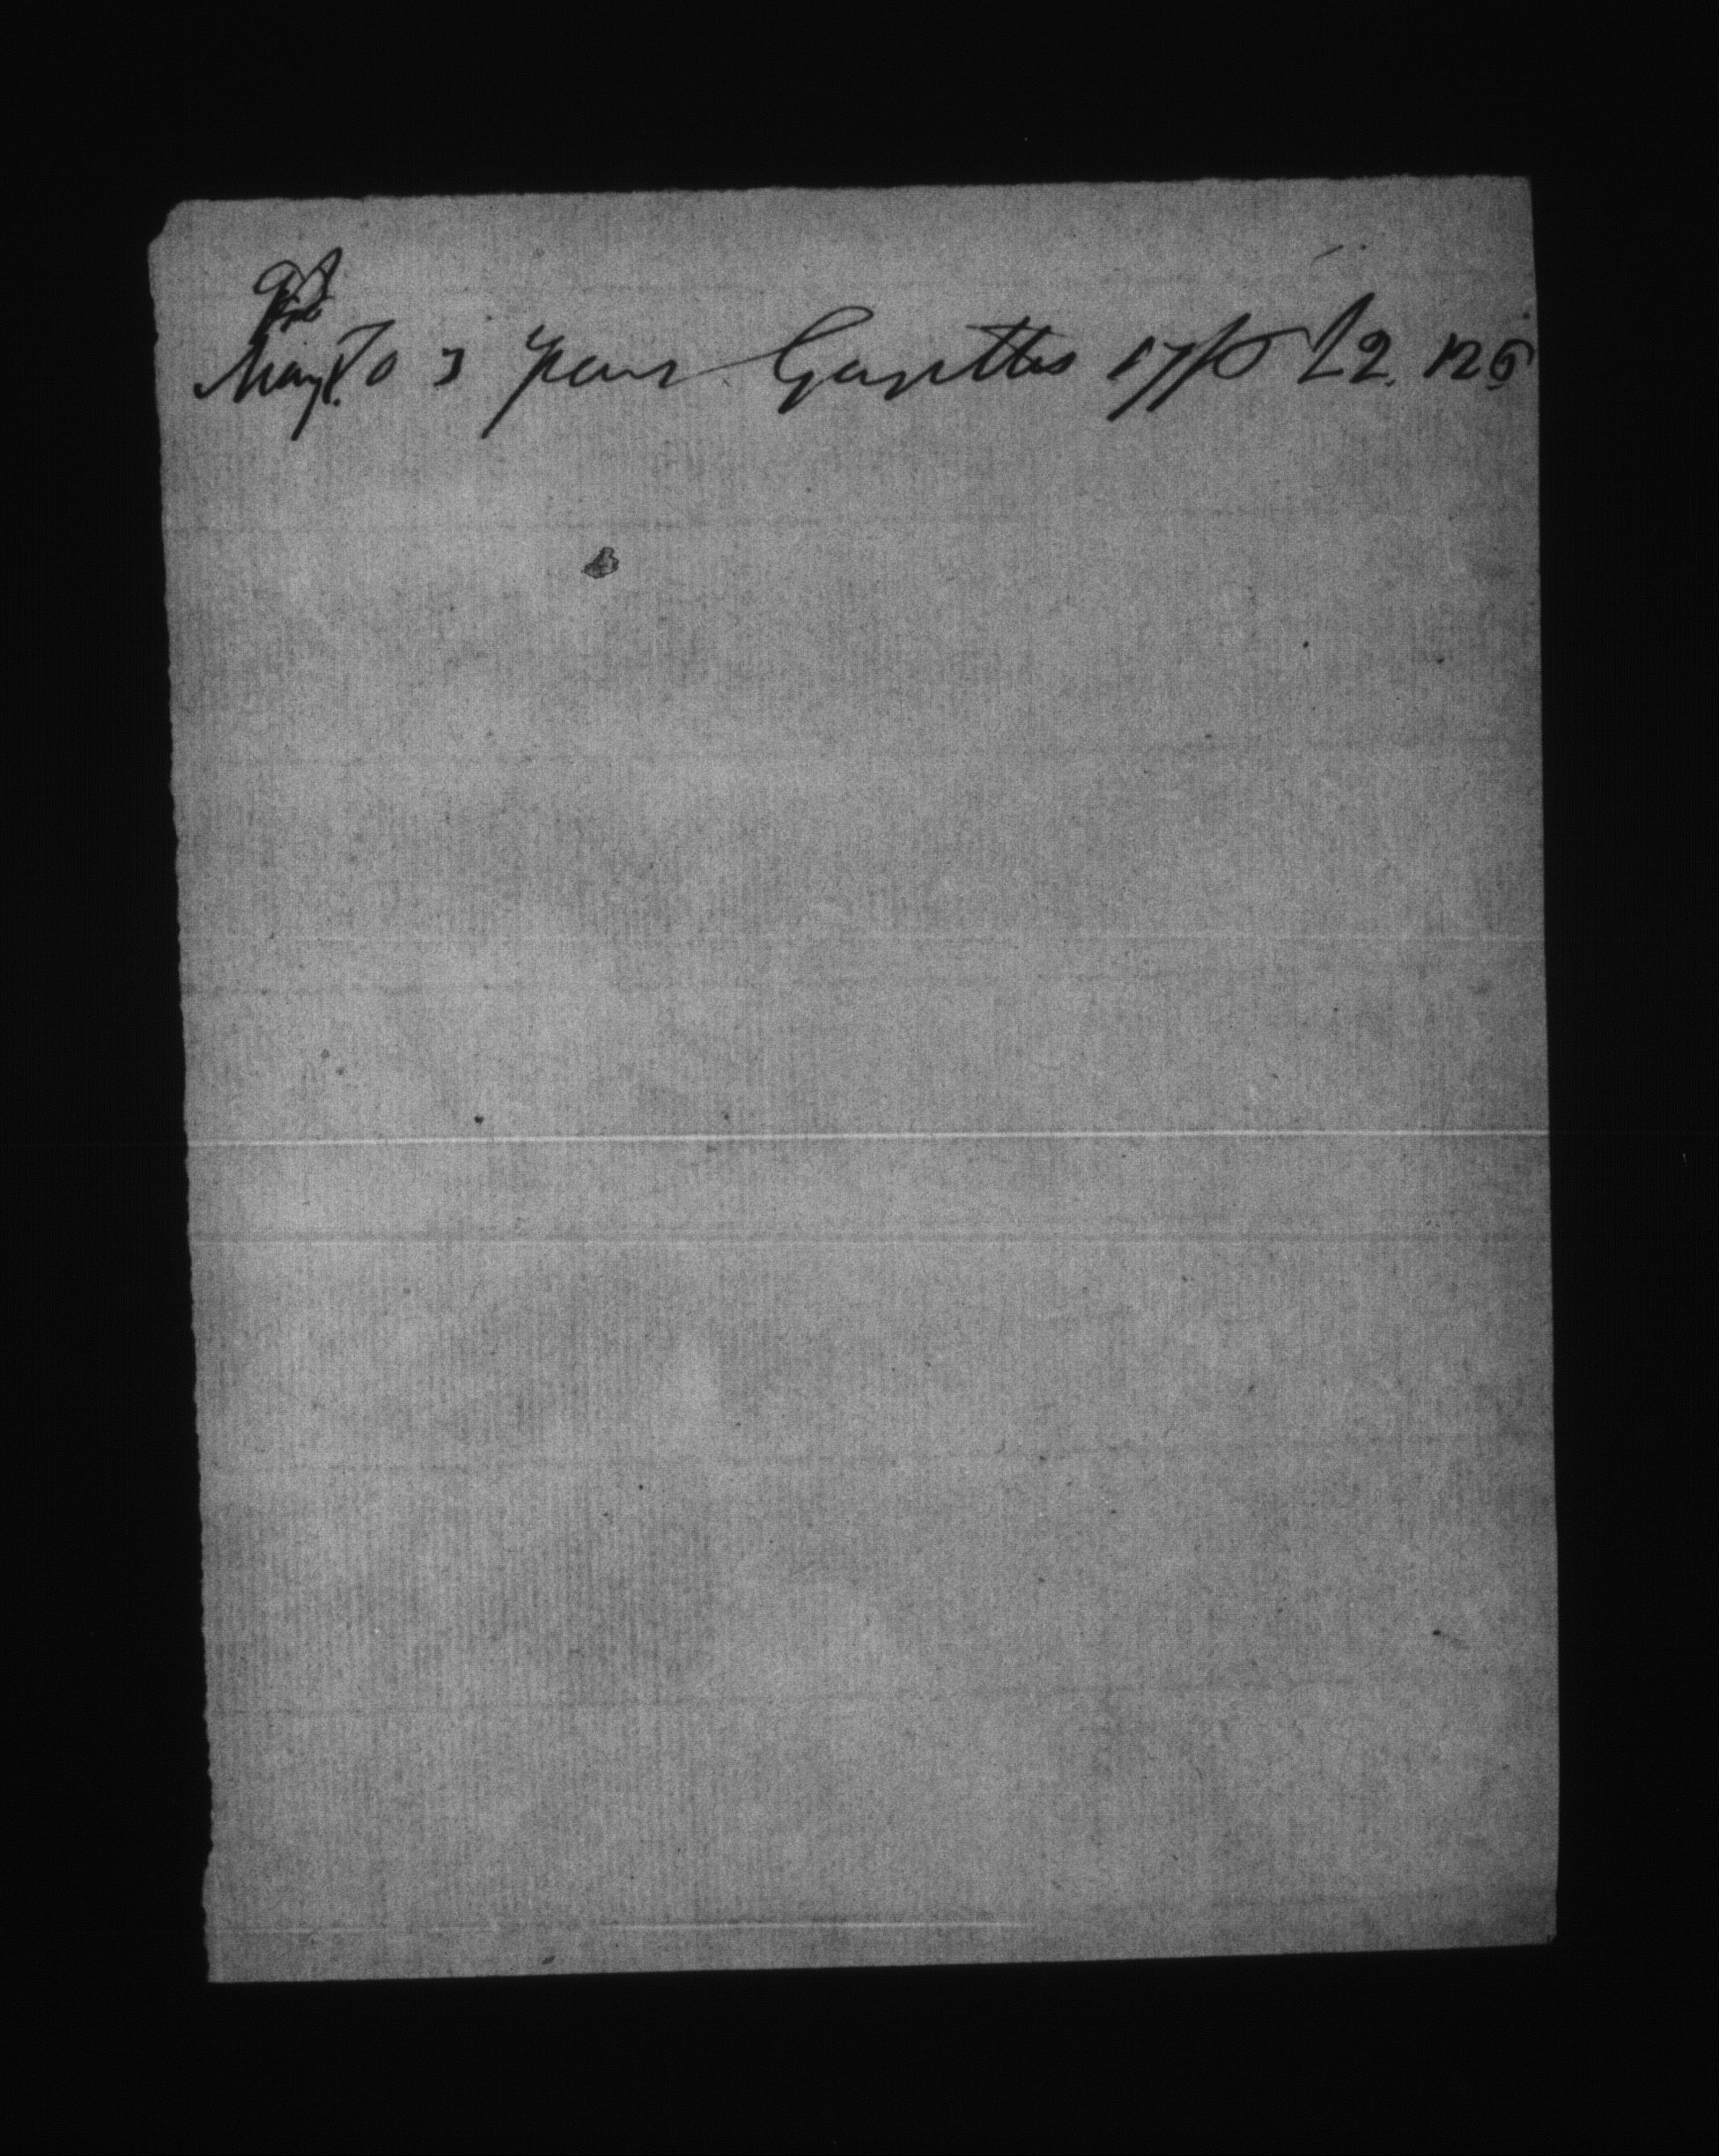 May To 3 years Gazettes 17/6 £2. 12 6